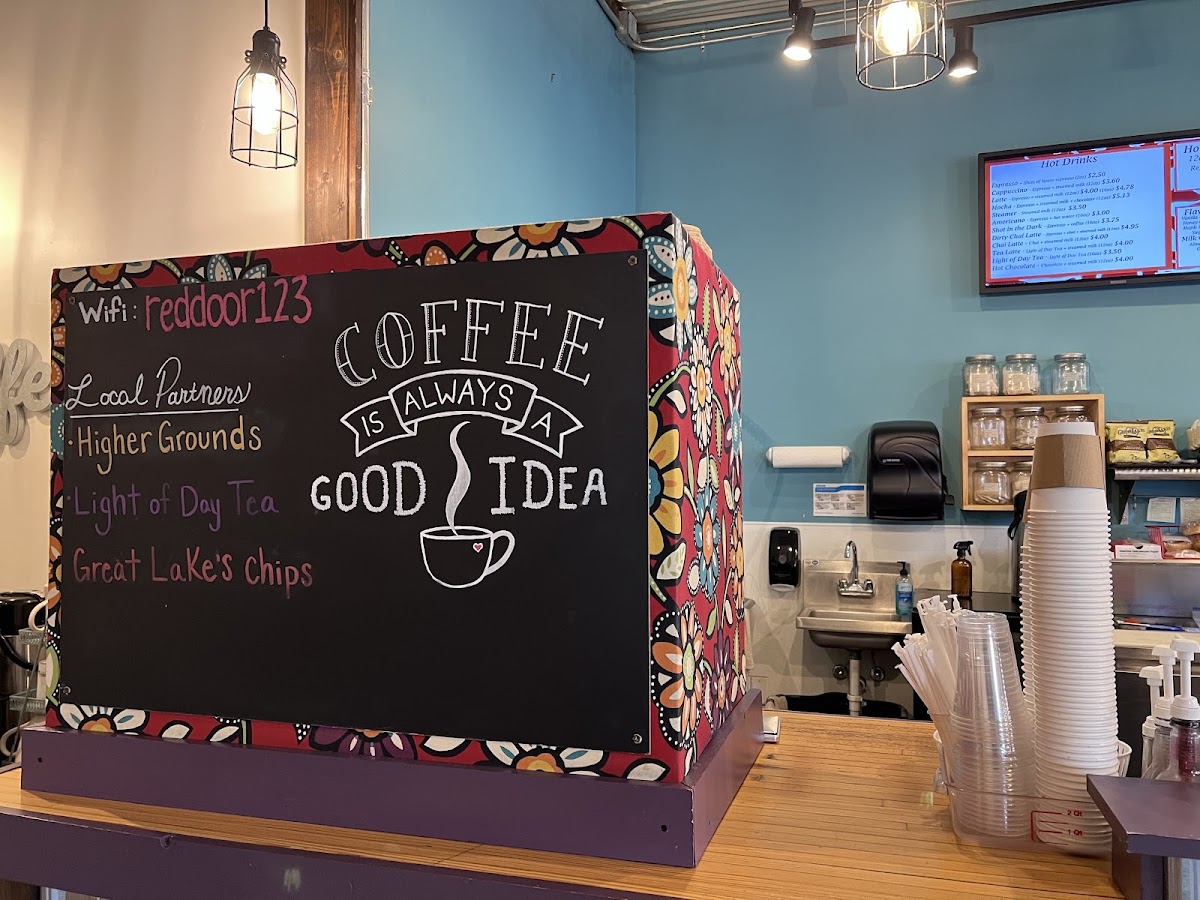 Wifi: reddoor123
Local Partners
· Higher Grounds
· Light of Day Tea
Great LaKe's Chips
COFFEE
IS ALWAYS A
GOOD IDEA
Hot Drinks
Espresso - Shots of house espresso (2oz) $2.50
Cappuccino - Espresso + steamed milk (8oz) $3.60
Latte - Espresso + steamed milk (12oz) $4.00 (16oz) $4.78
Mocha - Espresso + steamed milk + chocolate (12oz) $5.13
Steamer - Steamed milk (12oz) $3.50
Americano - Espresso + hot water (12oz) $3.00
Shot in the Dark - Espresso + coffee (16oz) $3.75
Dirty Chai Latte - Espresso + chai + steamed milk (12oz) $4.95
Chai Latte - Chai + steamed milk (12oz) $4.00
Tea Latte - Light of Day Tea + steamed milk (12oz) $4.00
Light of Day Tea - Light of Day Tea (12oz) $3.50
Hot Chocolate - Chocolate + steamed milk (12oz) $4.00
2 Qt
1 Qt